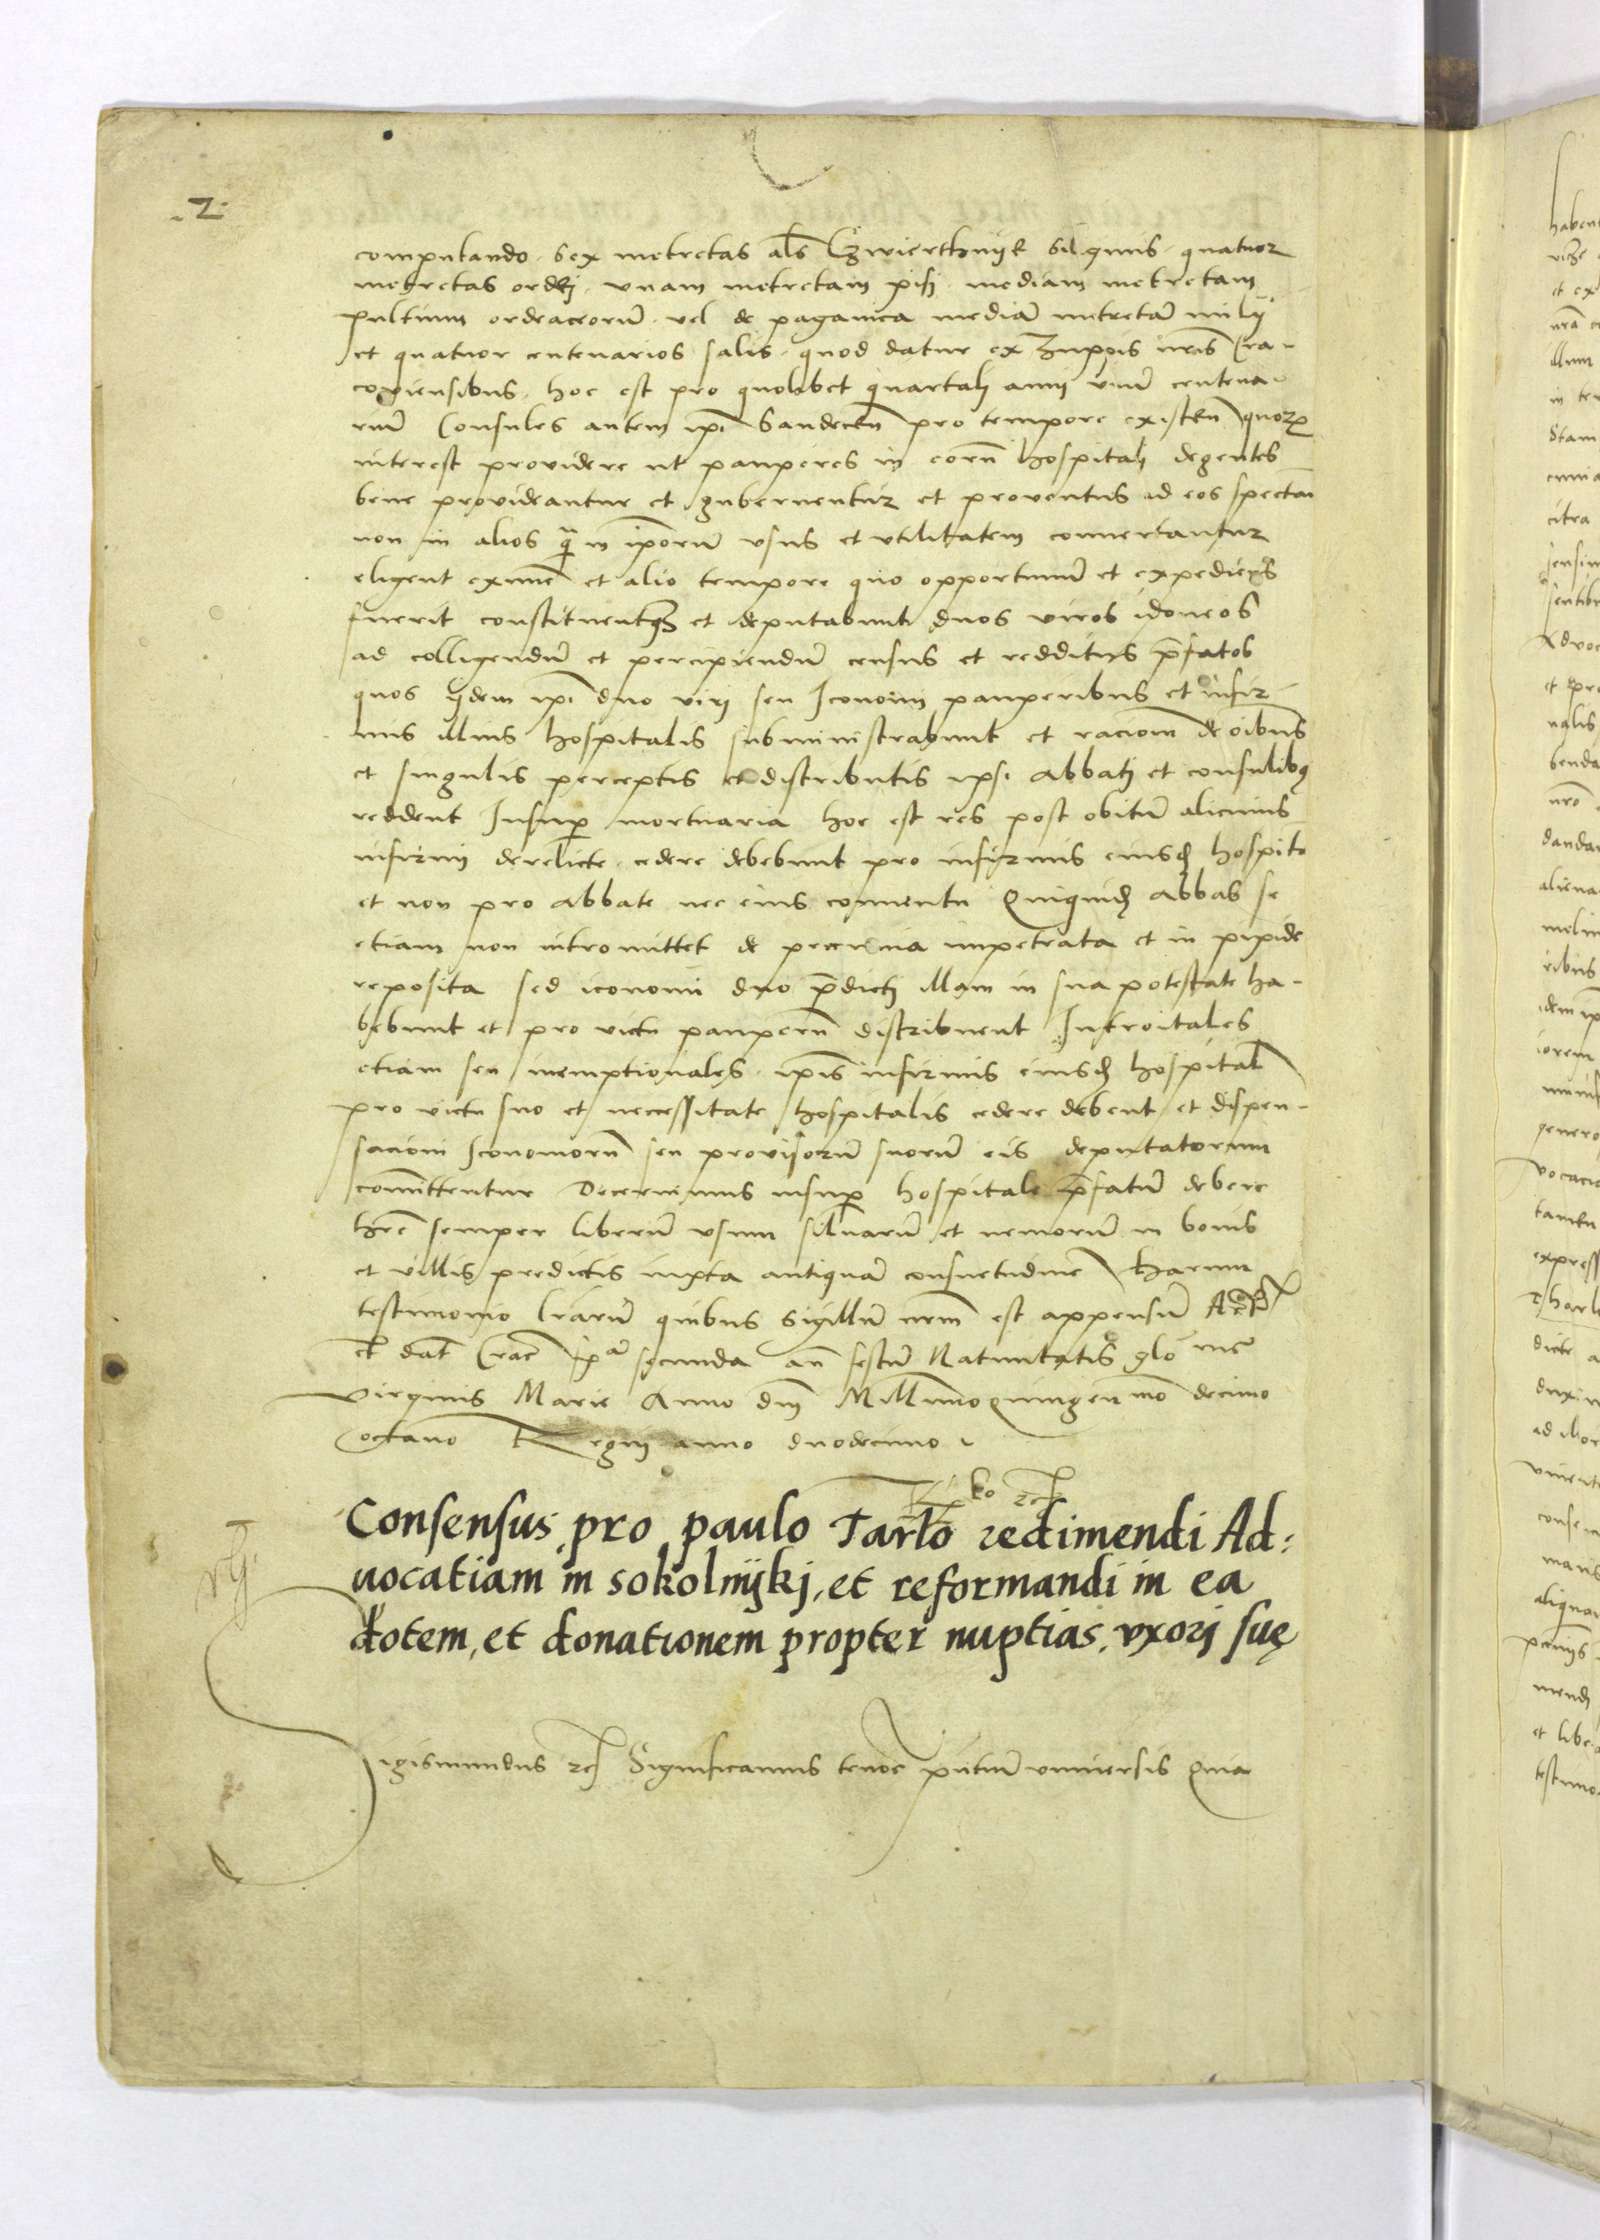 .2.
computando. sex metretas als Czwierthnÿk siliginis. quatuor
metretas ordei. vnam metretam pisi. mediam metretam
pultium ordeaceorum. vel de paganica mediam metretam milÿ
et quatuor centenarios salis. quod datur ex Zuppis nris Cra-
coviensibus. hoc est pro quolibet quartali anni vnum centena-
rium Consules autem ipi Sandecen pro tempore existen quorum
interest providere ut pauperes in eorum hospitali degentes
bene provideantur et gubernentur et proventus ad eos spectan
non in alios quam in ipsorum vsus et vtilitatem convertantur
eligent ex nunc et alio tempore quo opportunum et expediens
fuerit constituentque et deputabunt duos viros idoneos
ad colligendum et percipiendum census et redditus prefatos
quos ijdem ipi duo viri seu Iconomi pauperibus et infir-
mis illius hospitalis subministrabunt et racionem de oibus
et singulis perceptis et distributis ipsi abbati et consulibus
reddent Insuper mortuaria hoc est res post obitum alicuius
infirmi derelicte. cedere debebunt pro infirmis eiusdem hospita
et non pro abbate nec eius conventu Quiquidem abbas se
etiam non intromittet de pecunia impetrata et in pixide
reposita sed iconomi duo predicti illam in sua potestate ha-
bebunt et pro victu pauperum distribuent Introitales
etiam seu inemptionales. ipis infirmis eiusdem hospital
pro victu suo et necessitate hospitalis cedere debent et dispen-
sacioni Iconomorum seu provisorum suorum eis deputatorum
committentur Decernimus insuper hospitale prefatum debere
hre semper liberum vsum siluarum et nemorum in bonis
et villis predictis iuxta antiquam consuetudinem Harum
testimonio lrarum quibus Sigillum nrm est appensum Act
et dat Crac feria secunda an festum Natiuitatis glo me
virginis Marie Anno dni Millimo Quingen mo decimo
octauo Regni anno duodecimo.
Consensus pro paulo Tarlo redimendi Ad:
uocatiam in sokolnijki, et reformandi in ea
dotem, et donationem propter nuptias, vxori suę
Sigismundus etc Significamus tenore pntium vniuersis Quia